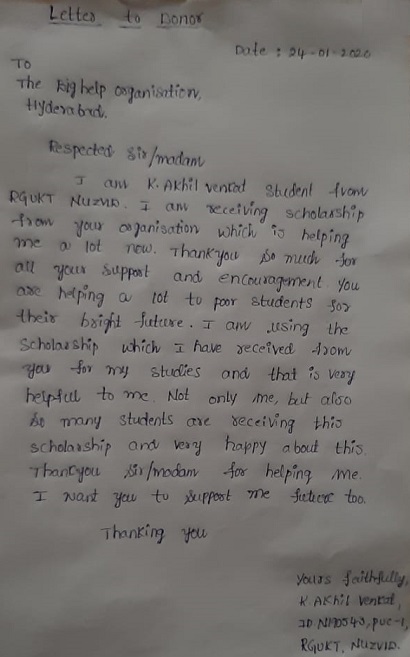 Letter to Donor
Date : 24-01-2020
To
The Bighelp organisation,
Hyderabad.
Respected Sir/madam
I am K. Akhil venkat Student from
RGUKT NUZVID. I am receiving scholarship
from your organisation which is helping
me a lot now. Thankyou so much for
all your support and encouragement you
are helping a lot to poor students for
their bright future. I am using the
Scholarship which I have received from
you for my studies and that is very
helpful to me. Not only me, but also
so many students are receiving this
scholarship and very happy about this.
Thankyou sir/madam for helping me.
I want you to support me future too.
Thanking you
Yours faithfully,
K. Akhil venkat,
PUC-1,
RGUKT, NUZVID.